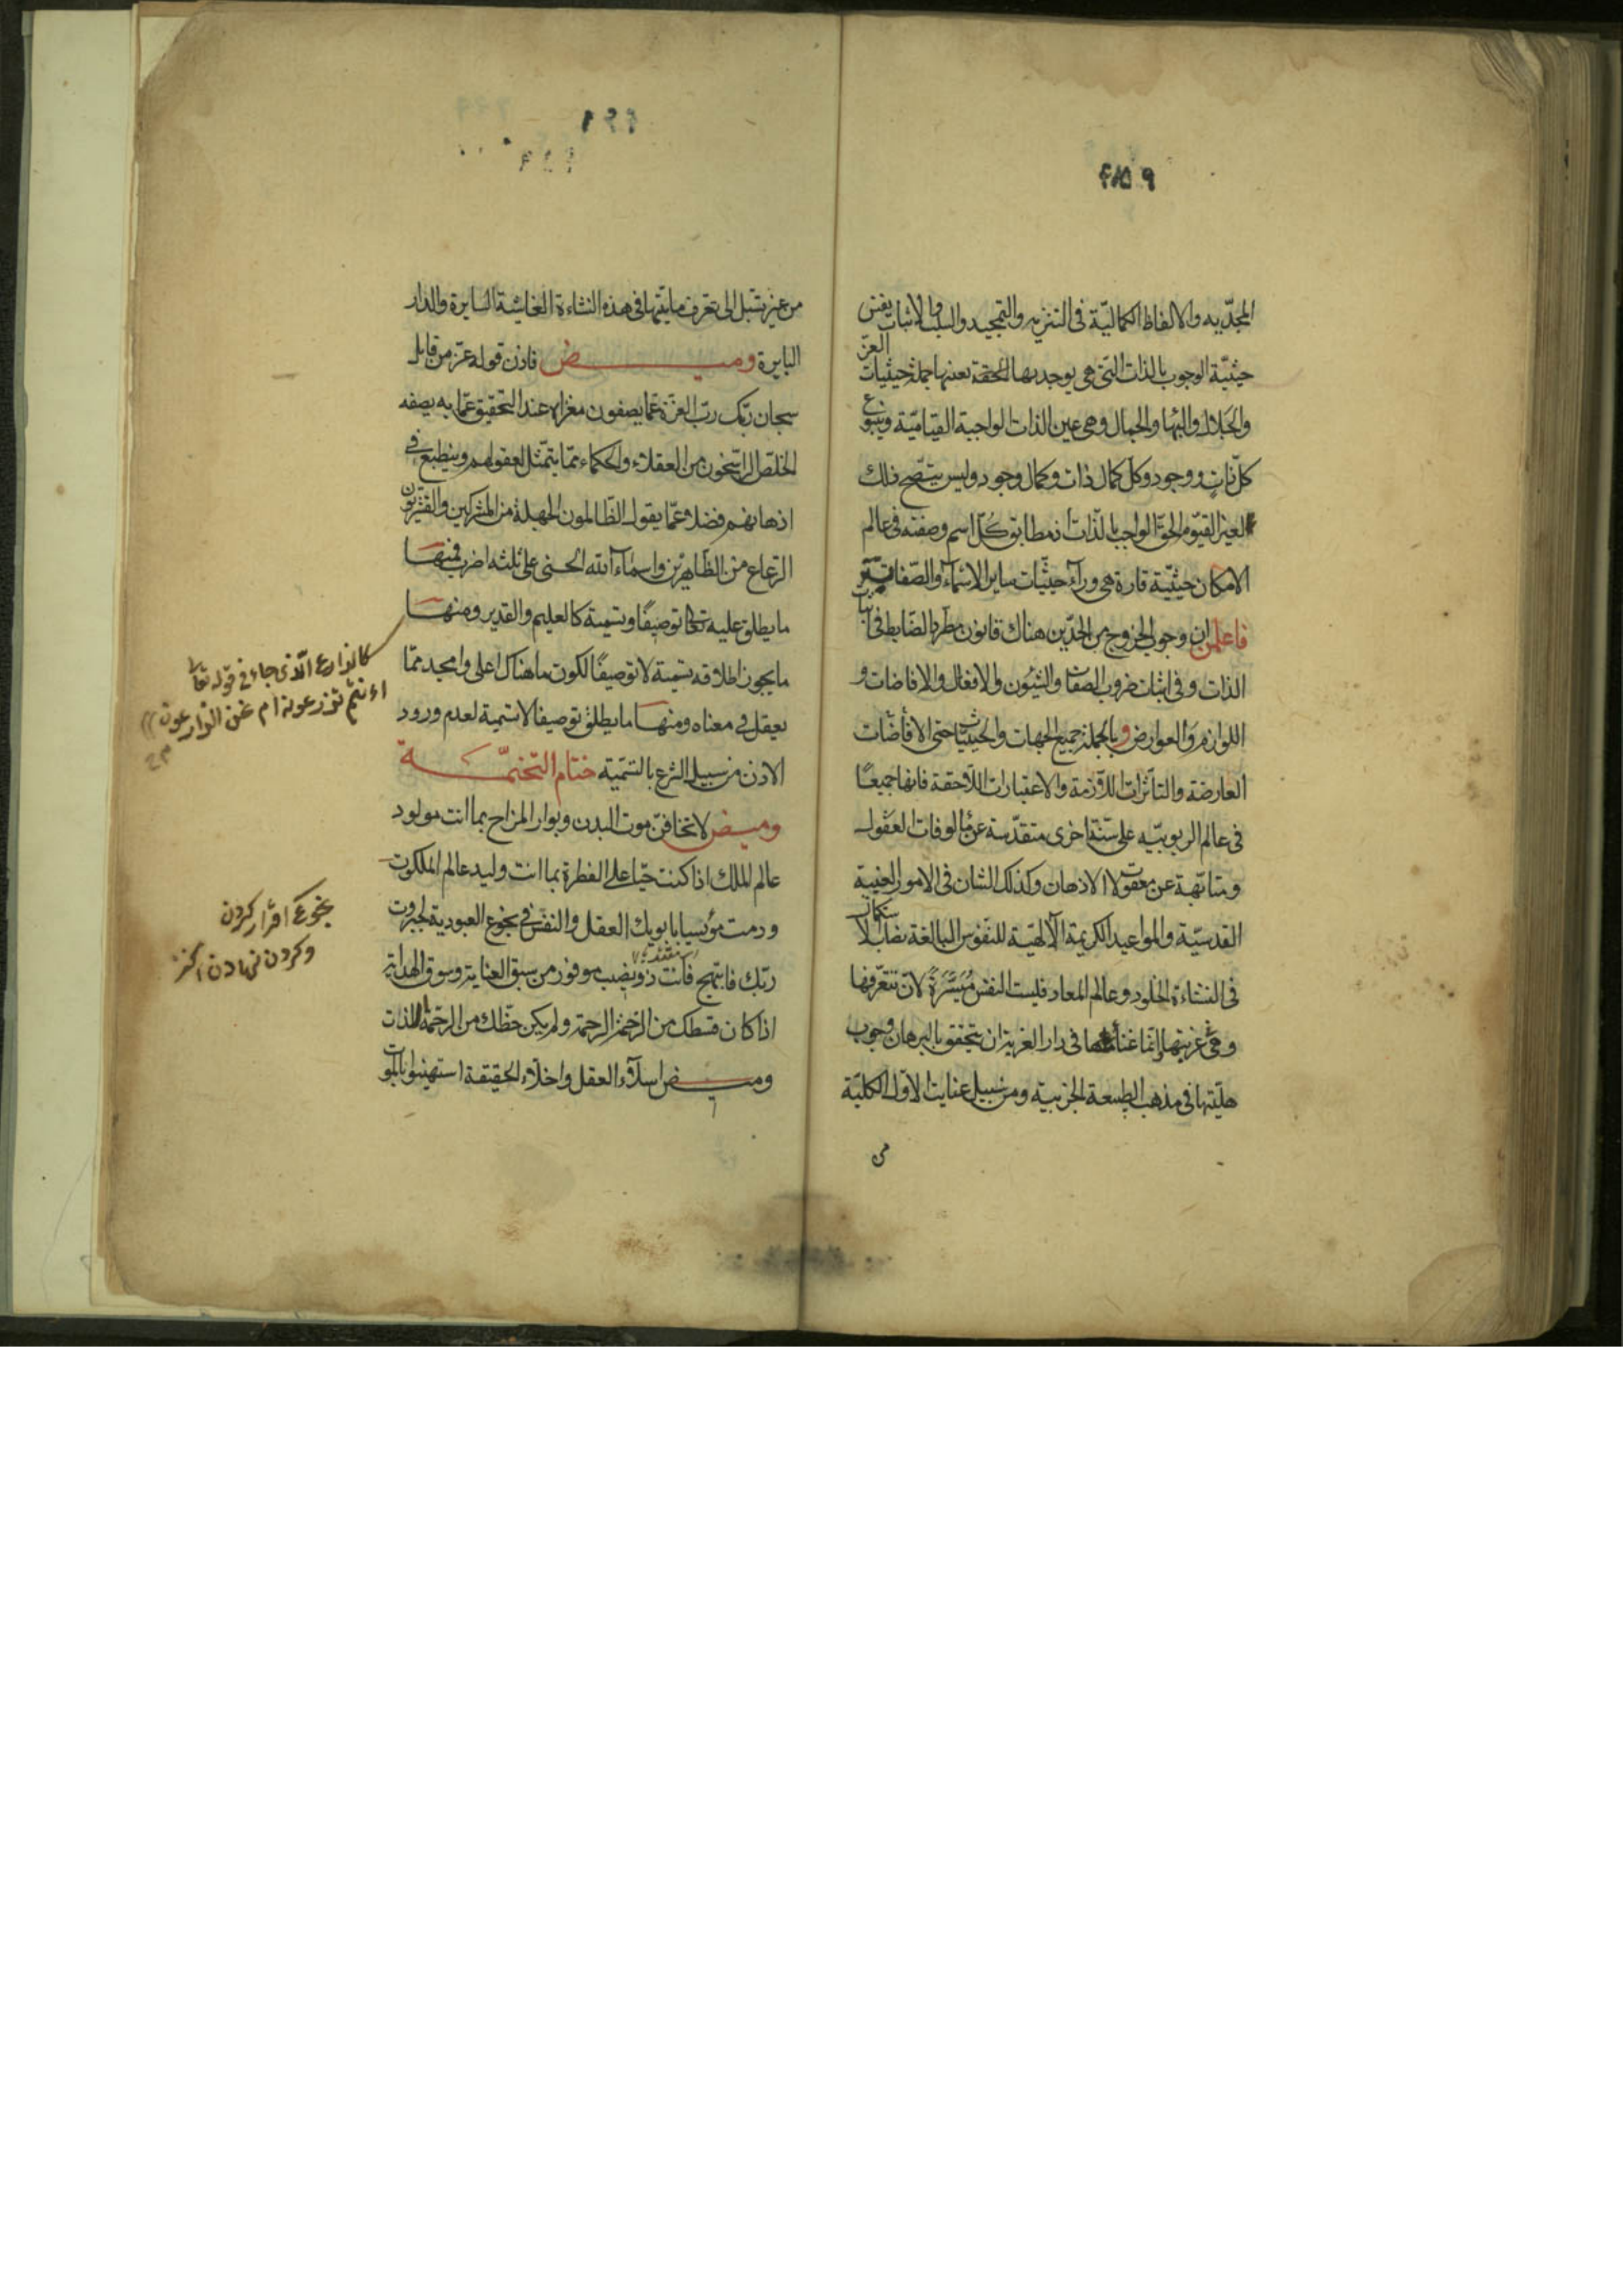 المجدّيه والالفاظ الكماليّة فى التنزيه والتمجيد والسلب والاثبات بنفس
حيثيّة الوجوب بالذات التى هى بوحدتها الحقة بعينها جملة حيثيات العزّ
والجلال والبهاء والجمال وهى عين الذات الواجبة القيّاميّة وينبوع
كلّ ذات ووجود وكل كمال ذات وكمال وجود وليس يتصحح ذلك
لغير القيّوم الحقّ الواجب بالذات اذ مطابق كلّ اسم وصفته فى عالم
الامكان حيثيّة قارة هى ورآء حيثيّات ساير الاسمآء والصّفات
فاعلمن ان وجوب الخروج من الحدّين هناك قانون مطّرد الضابط فى اثبات
الذات وفى اثبات ضروب الصفات والشئون والافعال والافاضات و
اللوازم والعوارض وبالجملة جميع الجهات والحيثيّات حتى الافاضات
العارضة والتأثرات اللازمة والاعتبارات اللاحقة فانها جميعًا
فى عالم الربوبيّه على سنّة اخرى متقدّسة عن مالوفات العقول
ومتابّهة عن معقولات الاذهان وكذلك الشان فى الامور الغيبية
القدسيّة والمواعيد الكريمة الآلهيّة للنفوس البالغة نصاب الاستكمال
فى النشاءة الخلود وعالم المعاد فليست النفس مُيَسَّرَةً لان تتعرّفها
وهى فى غربتها وانما غناؤها فى دار الغربة ان يتحقق بالبرهان وجوب
هليّتها فى مذهب الطبيعة الجزئية ومن سبيل عنايت الاول الكليّة
من
من غير سبيل الى تعرف ماهيّتها فى هذه النشاءة الغاشية السايرة والدار
البايرة وميض فاذن قوله عزّ من قايل
سبحان ربّك ربّ العزّة عمّا يصفون مغزاه عند التحقيق عمّا به يصفه
الخلّص الراسخون من العقلاء والحكماء ممّا يتمثّل لعقولهم وينطبع فى
اذهانهم فضلا عمّا يقول الظّالمون الجهلة من المشركين والقشريّون
الرعاع من الظاهريّن واسماء آلله الحسنى على ثلثه اضرب فمنها
ما يطلق عليه تعالى توصيفًا وتسمية كالعليم والقدير ومنها
ما يجوز اطلاقه تسمية لا توصيفًا لكون ما هناك اعلى وامجد ممّا
يعقل فى معناه ومنها ما يطلق توصيفا لا تسمية لعدم ورود
الاذن من سبيل الشرع بالتسمّية ختام التختمّة
وميض لا تخافنّ موت البدن وبوار المزاج بما انت مولود
عالم الملك اذا كنت حيّا على الفطرة بما انت وليد عالم الملكوت
ودمت مؤتسيا بابويك العقل والنفس فى بخوع العبودية لجبروت
ربّك فابتهج فانت ذو نصيب موفور من سبق العناية وسوق الهداية
اذا كان قسطك من الرحمة الرحمة ولم يكن حظّك من الرحمة اللذات
وميض اسلآء العقل واخلآء الحقيقة استهينوا بالموت
كالزارع الّذى جاء فى قوله تعا
ءانتم تزرعونه ام نحن الزارعون
بخوع اقرار كردن
وكردن نهادن